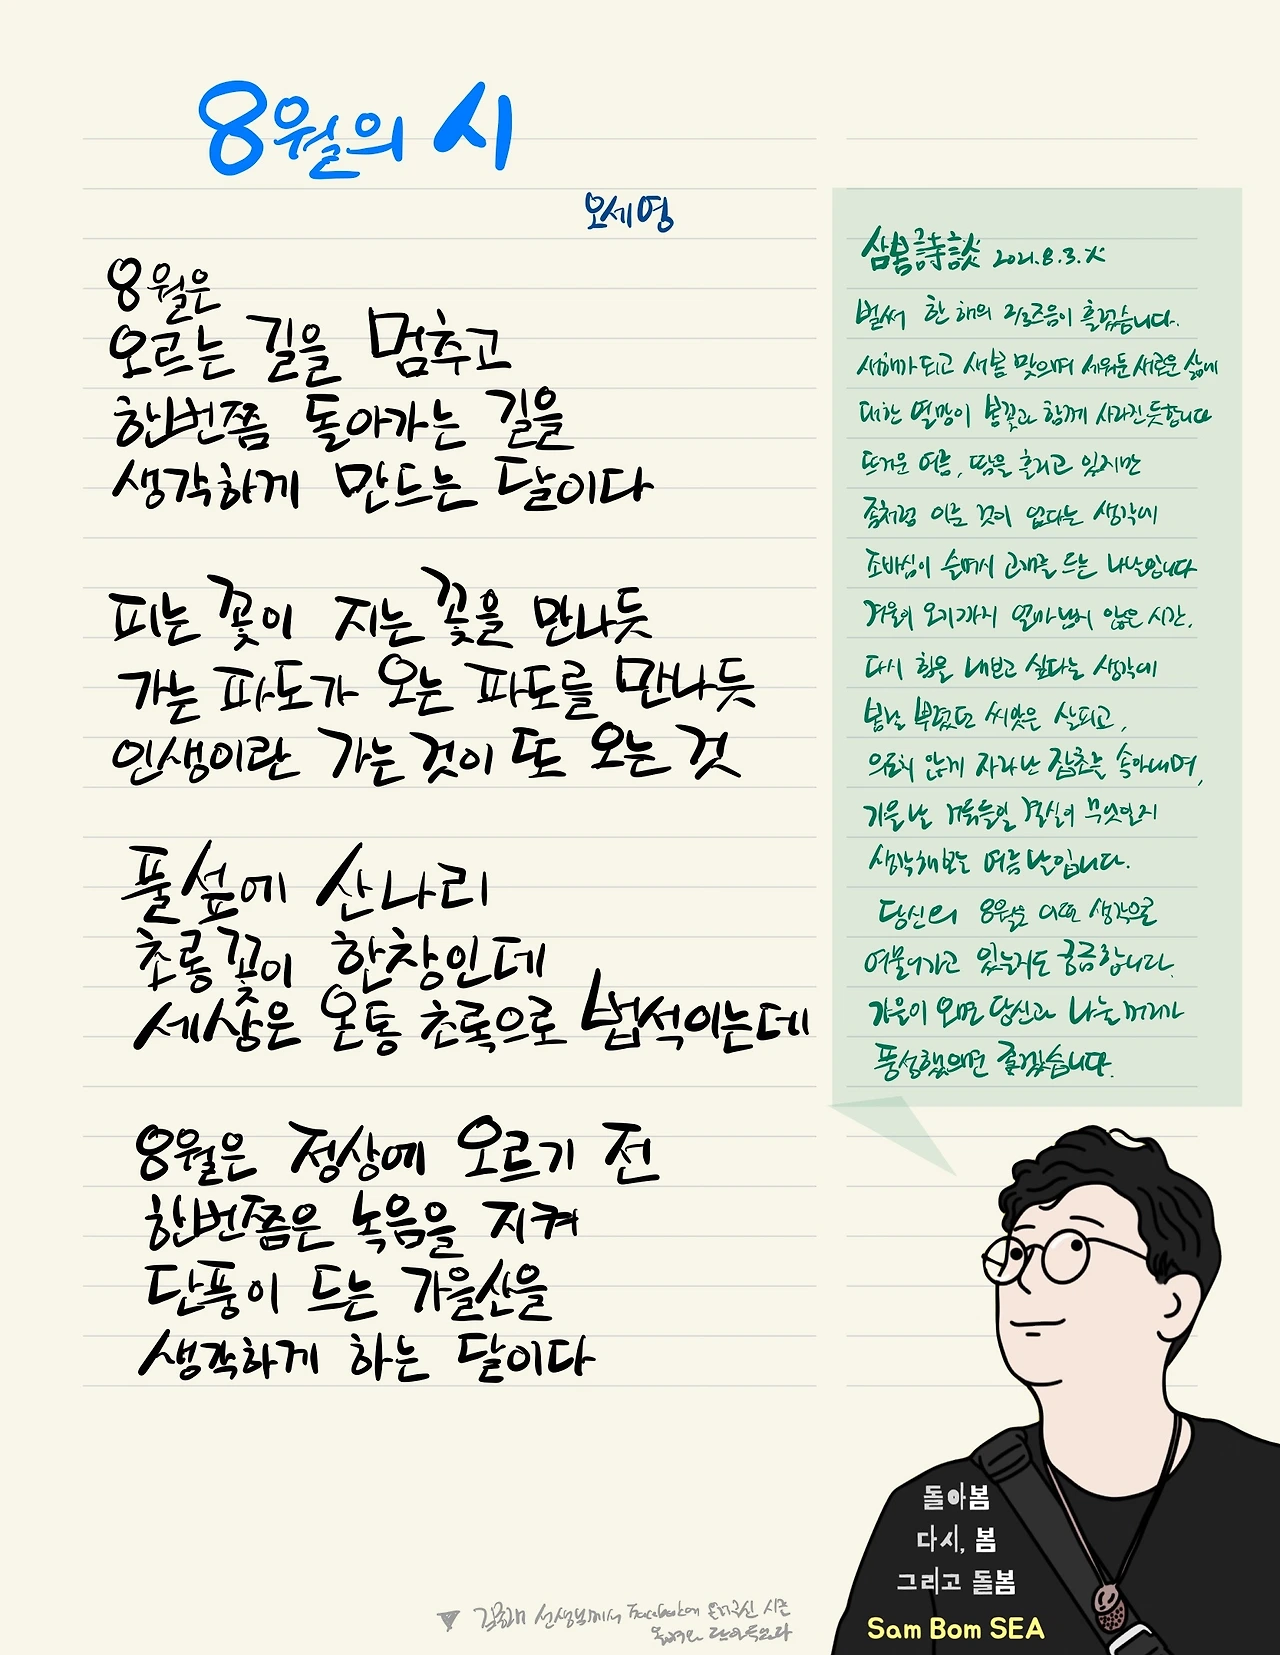 8월의 시
오세영
8월은
오르는 길을 멈추고
한번쯤 돌아가는 길을
생각하게 만드는 달이다
피는 꽃이 지는 꽃을 만나듯
가는 파도가 오는 파도를 만나듯
인생이란 가는 것이 또 오는 것
풀섶에 산나리
초롱꽃이 한창인데
세상은 온통 초록으로 법석이는데
8월은 정상에 오르기 전
한번쯤은 녹음을 지켜
단풍이 드는 가을산을
생각하게 하는 달이다
삼봄詩談 2021.8.3.火
벌써 한 해의 2/3즈음이 흘렀습니다.
새해가 되고 새봄 맞으며 세워둔 새로운 삶에
대한 열망이 봄꽃과 함께 사라진듯합니다
뜨거운 여름, 땀을 흘리고 있지만
좀처럼 이룬 것이 없다는 생각에
조바심이 슬며시 고개를 드는 나날입니다
겨울이 오기까지 얼마 남지 않은 시간,
다시 힘을 내보고 싶다는 생각에
봄날 뿌렸던 씨앗은 살피고,
의도치 않게 자라난 잡초를 솎아내며,
가을날 거둬들일 결실이 무엇인지
생각해보는 여름날입니다.
당신의 8월은 어떤 생각으로
여물어가고 있는지도 궁금합니다.
가을이 오면 당신과 나눌 꺼리가
풍성했으면 좋겠습니다.
돌아봄
다시, 봄
그리고 돌봄
Sam Bom SEA
선생님께서 Facebook에